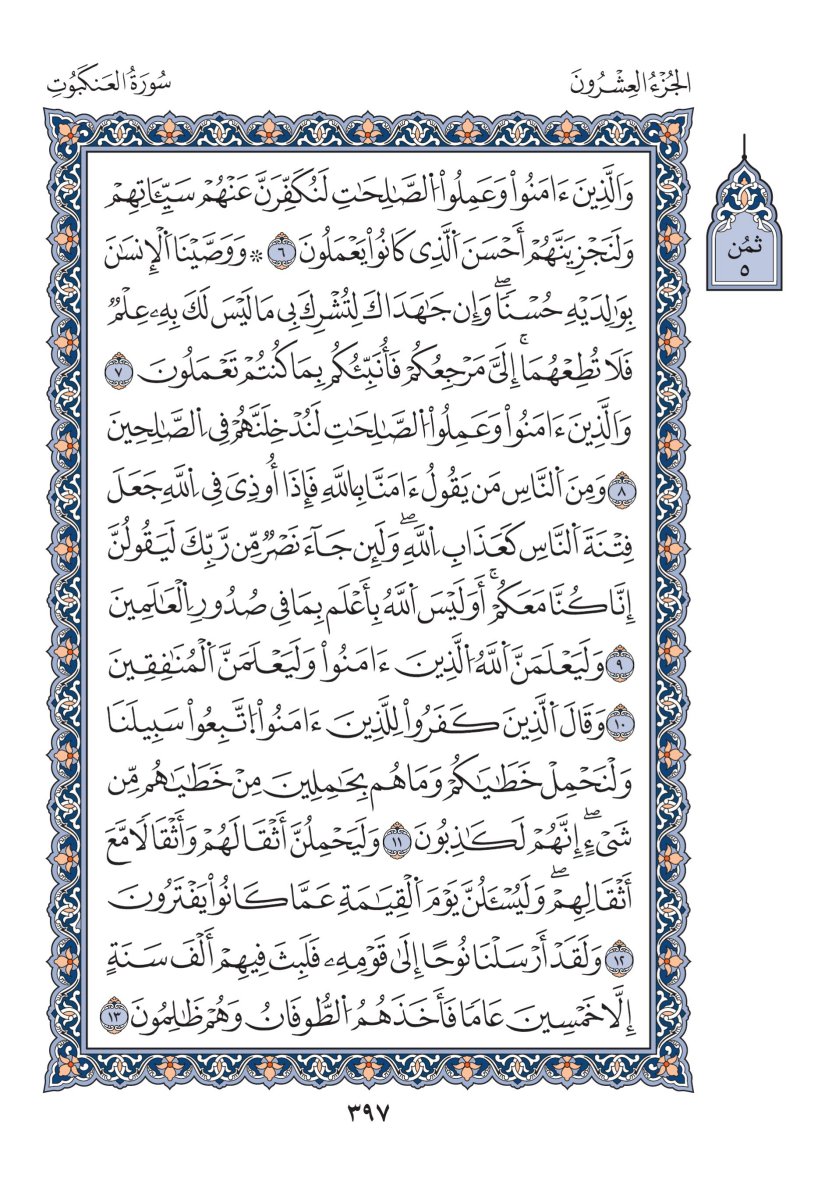 الجُزْءُ العِشْرُونَ
سُورَةُ العَنكَبُوتِ
وَالَّذِينَ ءَامَنُواْ وَعَمِلُواْ اُ۬لصَّٰلِحَٰتِ لَنُكَفِّرَنَّ عَنْهُمْ سَيِّـَٔاتِهِمْ
وَلَنَجْزِيَنَّهُمْ أَحْسَنَ اَ۬لَّذِى كَانُواْ يَعْمَلُونَ ٦ ۞ وَوَصَّيْنَا اَ۬لْإِنسَٰنَ
بِوَٰلِدَيْهِ حُسْناًۖ وَإِن جَٰهَدَاكَ لِتُشْرِكَ بِى مَا لَيْسَ لَكَ بِهِۦ عِلْمٌ
فَلَا تُطِعْهُمَاۚ إِلَىَّ مَرْجِعُكُمْ فَأُنَبِّئُكُم بِمَا كُنتُمْ تَعْمَلُونَ ٧
وَالَّذِينَ ءَامَنُواْ وَعَمِلُواْ اُ۬لصَّٰلِحَٰتِ لَنُدْخِلَنَّهُمْ فِى اِ۬لصَّٰلِحِينَ
٨ وَمِنَ اَ۬لنَّاسِ مَن يَقُولُ ءَامَنَّا بِاللَّهِ فَإِذَا أُوذِىَ فِى اِ۬للَّهِ جَعَلَ
فِتْنَةَ اَ۬لنَّاسِ كَعَذَابِ اِ۬للَّهِۖ وَلَئِن جَآءَ نَصْرٌ مِّن رَّبِّكَ لَيَقُولُنَّ
إِنَّا كُنَّا مَعَكُمْۚ أَوَلَيْسَ اَ۬للَّهُ بِأَعْلَم بِمَا فِى صُدُورِ اِ۬لْعَٰلَمِينَ
٩ وَلَيَعْلَمَنَّ اَ۬للَّهُ اُ۬لَّذِينَ ءَامَنُواْ وَلَيَعْلَمَنَّ اَ۬لْمُنَٰفِقِينَ
١٠ وَقَالَ اَ۬لَّذِينَ كَفَرُواْ لِلَّذِينَ ءَامَنُواْ اُ۪تَّبِعُواْ سَبِيلَنَا
وَلْنَحْمِلْ خَطَٰيَٰكُمْ وَمَا هُم بِحَٰمِلِينَ مِنْ خَطَٰيَٰهُم مِّن
شَىْءٍۖ إِنَّهُمْ لَكَٰذِبُونَ ١١ وَلَيَحْمِلُنَّ أَثْقَالَهُمْ وَأَثْقَالًا مَّعَ
أَثْقَالِهِمْۖ وَلَيُسْـَٔلُنَّ يَوْمَ اَ۬لْقِيَٰمَةِ عَمَّا كَانُواْ يَفْتَرُونَ
١٢ وَلَقَدْ أَرْسَلْنَا نُوحًا إِلَىٰ قَوْمِهِۦ فَلَبِثَ فِيهِمْ أَلْفَ سَنَةٍ
إِلَّا خَمْسِينَ عَامًا فَأَخَذَهُمُ اُ۬لطُّوفَانُ وَهُمْ ظَٰلِمُونَ ١٣
ثُمُن
٥
٣٩٧